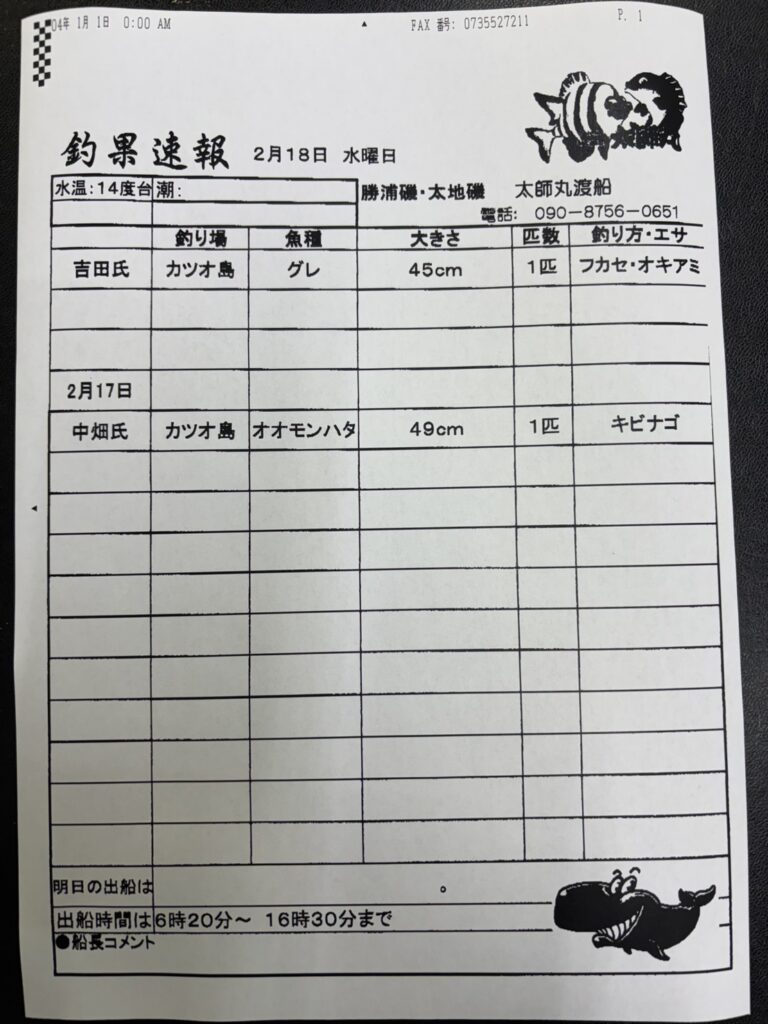 04年 1月 1日 0:00 AM FAX 番号: 0735527211 P. 1
釣果速報 2月18日 水曜日
水温:14度台 潮: 勝浦磯・太地磯 太師丸渡船
電話: 090-8756-0651
釣り場 魚種 大きさ 匹数 釣り方・エサ
吉田氏 カツオ島 グレ 45cm 1匹 フカセ・オキアミ
2月17日
中畑氏 カツオ島 オオモンハタ 49cm 1匹 キビナゴ
明日の出船は 。
出船時間は 6時20分～ 16時30分まで
●船長コメント